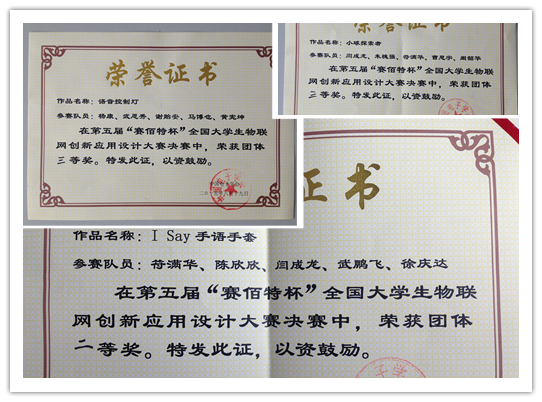 荣誉证书
作品名称：语音控制灯
参赛队员：杨康、武思秀、谢贻安、马博也、黄宪坤
在第五届“赛佰特杯”全国大学生物联
网创新应用设计大赛决赛中，荣获团体
三等奖。特发此证，以资鼓励。
荣誉证书
作品名称：小球探索者
参赛队员：闫成龙、朱槐强、符满华、曹思宇、周韶华
在第五届“赛佰特杯”全国大学生物联
网创新应用设计大赛决赛中，荣获团体
二等奖。特发此证，以资鼓励。
证书
作品名称：I Say 手语手套
参赛队员：符满华、陈欣欣、闫成龙、武鹏飞、徐庆达
在第五届“赛佰特杯”全国大学生物联
网创新应用设计大赛决赛中，荣获团体
二等奖。特发此证，以资鼓励。
子学